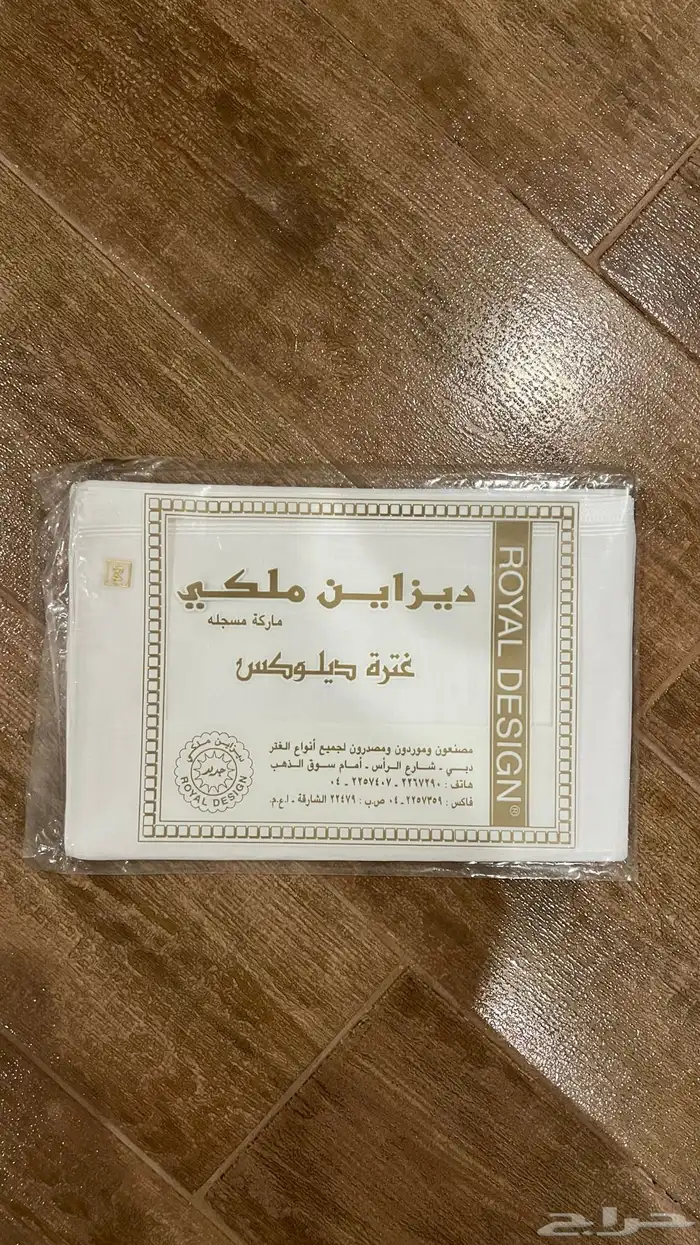 ديزاين ملكي
ماركة مسجله
غترة ديلوكس
ROYAL DESIGN®
مصنعون وموردون ومصدرون لجميع أنواع الغتر
دبي - شارع الرأس - أمام سوق الذهب
هاتف : ٢٢٦٧٢٩٠ - ٢٢٥٧٤٠٧ - ٠٤
فاكس : ٢٢٥٧٣٥٩ - ٠٤ ص.ب : ٢٢٤٧٩ الشارقة - ا.ع.م.
ديزاين ملكي
جديد
ROYAL DESIGN
حراج